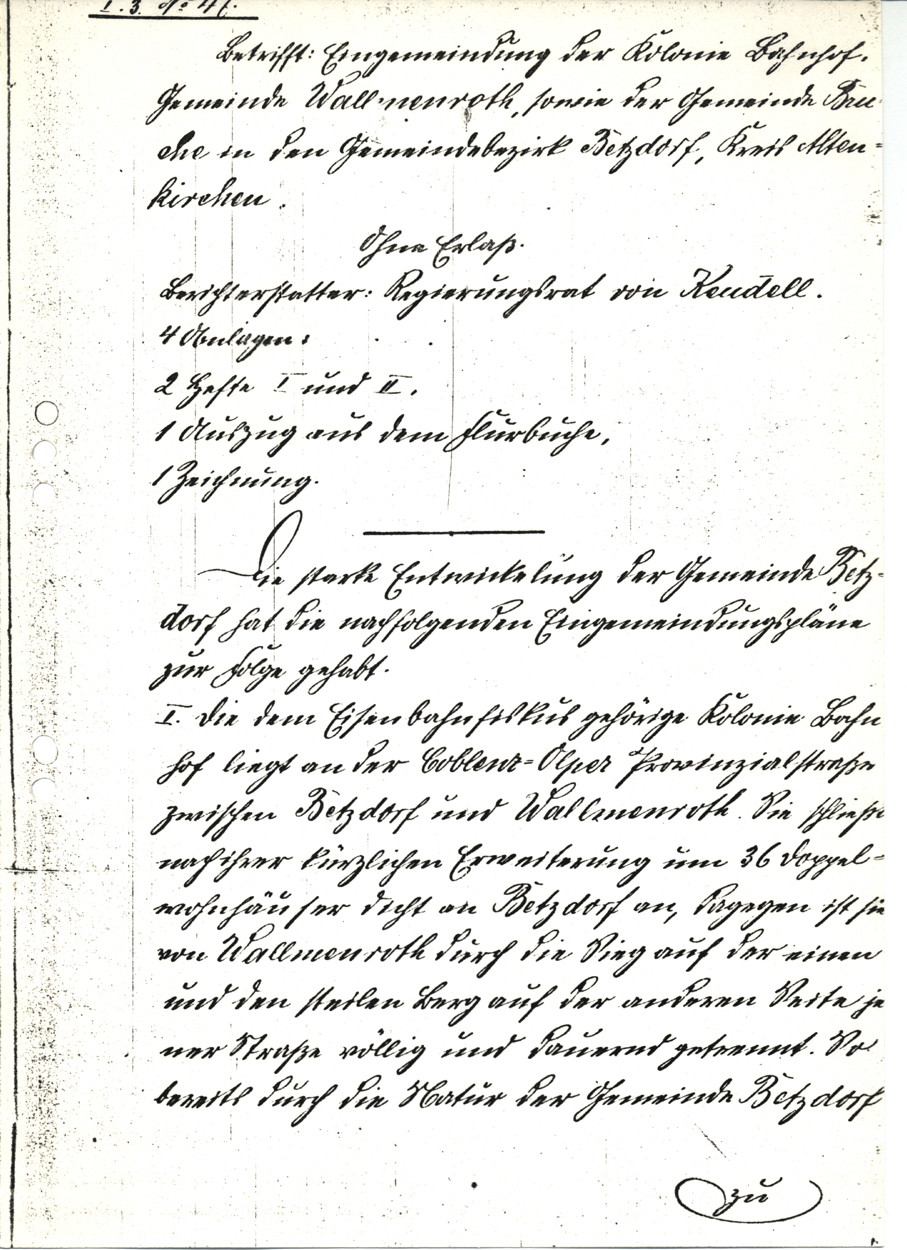 I. 3. No 47.
Betrifft: Eingemeindung der Kolonie Bahnhof,
Gemeinde Wallmenroth, sowie der Gemeinde Bru-
che in den Gemeindebezirk Betzdorf, Kreis Alten=
kirchen.
Ohne Erlaß.
Berichterstatter: Regierungsrat von Keudell.
4 Anlagen:
2 Hefte I und II.
1 Auszug aus dem Flurbuche,
1 Zeichnung.
Die starke Entwickelung der Gemeinde Betz=
dorf hat die nachfolgenden Eingemeindungspläne
zur Folge gehabt.
I. Die dem Eisenbahnfiskus gehörige Kolonie Bahn
hof liegt an der Coblenz=Olper Provinzialstraße
zwischen Betzdorf und Wallmenroth. Sie schließt
nach ihrer kürzlichen Erweiterung um 36 Doppel=
wohnhäuser dicht an Betzdorf an, dagegen ist sie
von Wallmenroth durch die Sieg auf der einen
und den steilen Berg auf der anderen Seite je
ner Straße völlig und dauernd getrennt. So
bereits durch die Natur der Gemeinde Betzdorf
zu